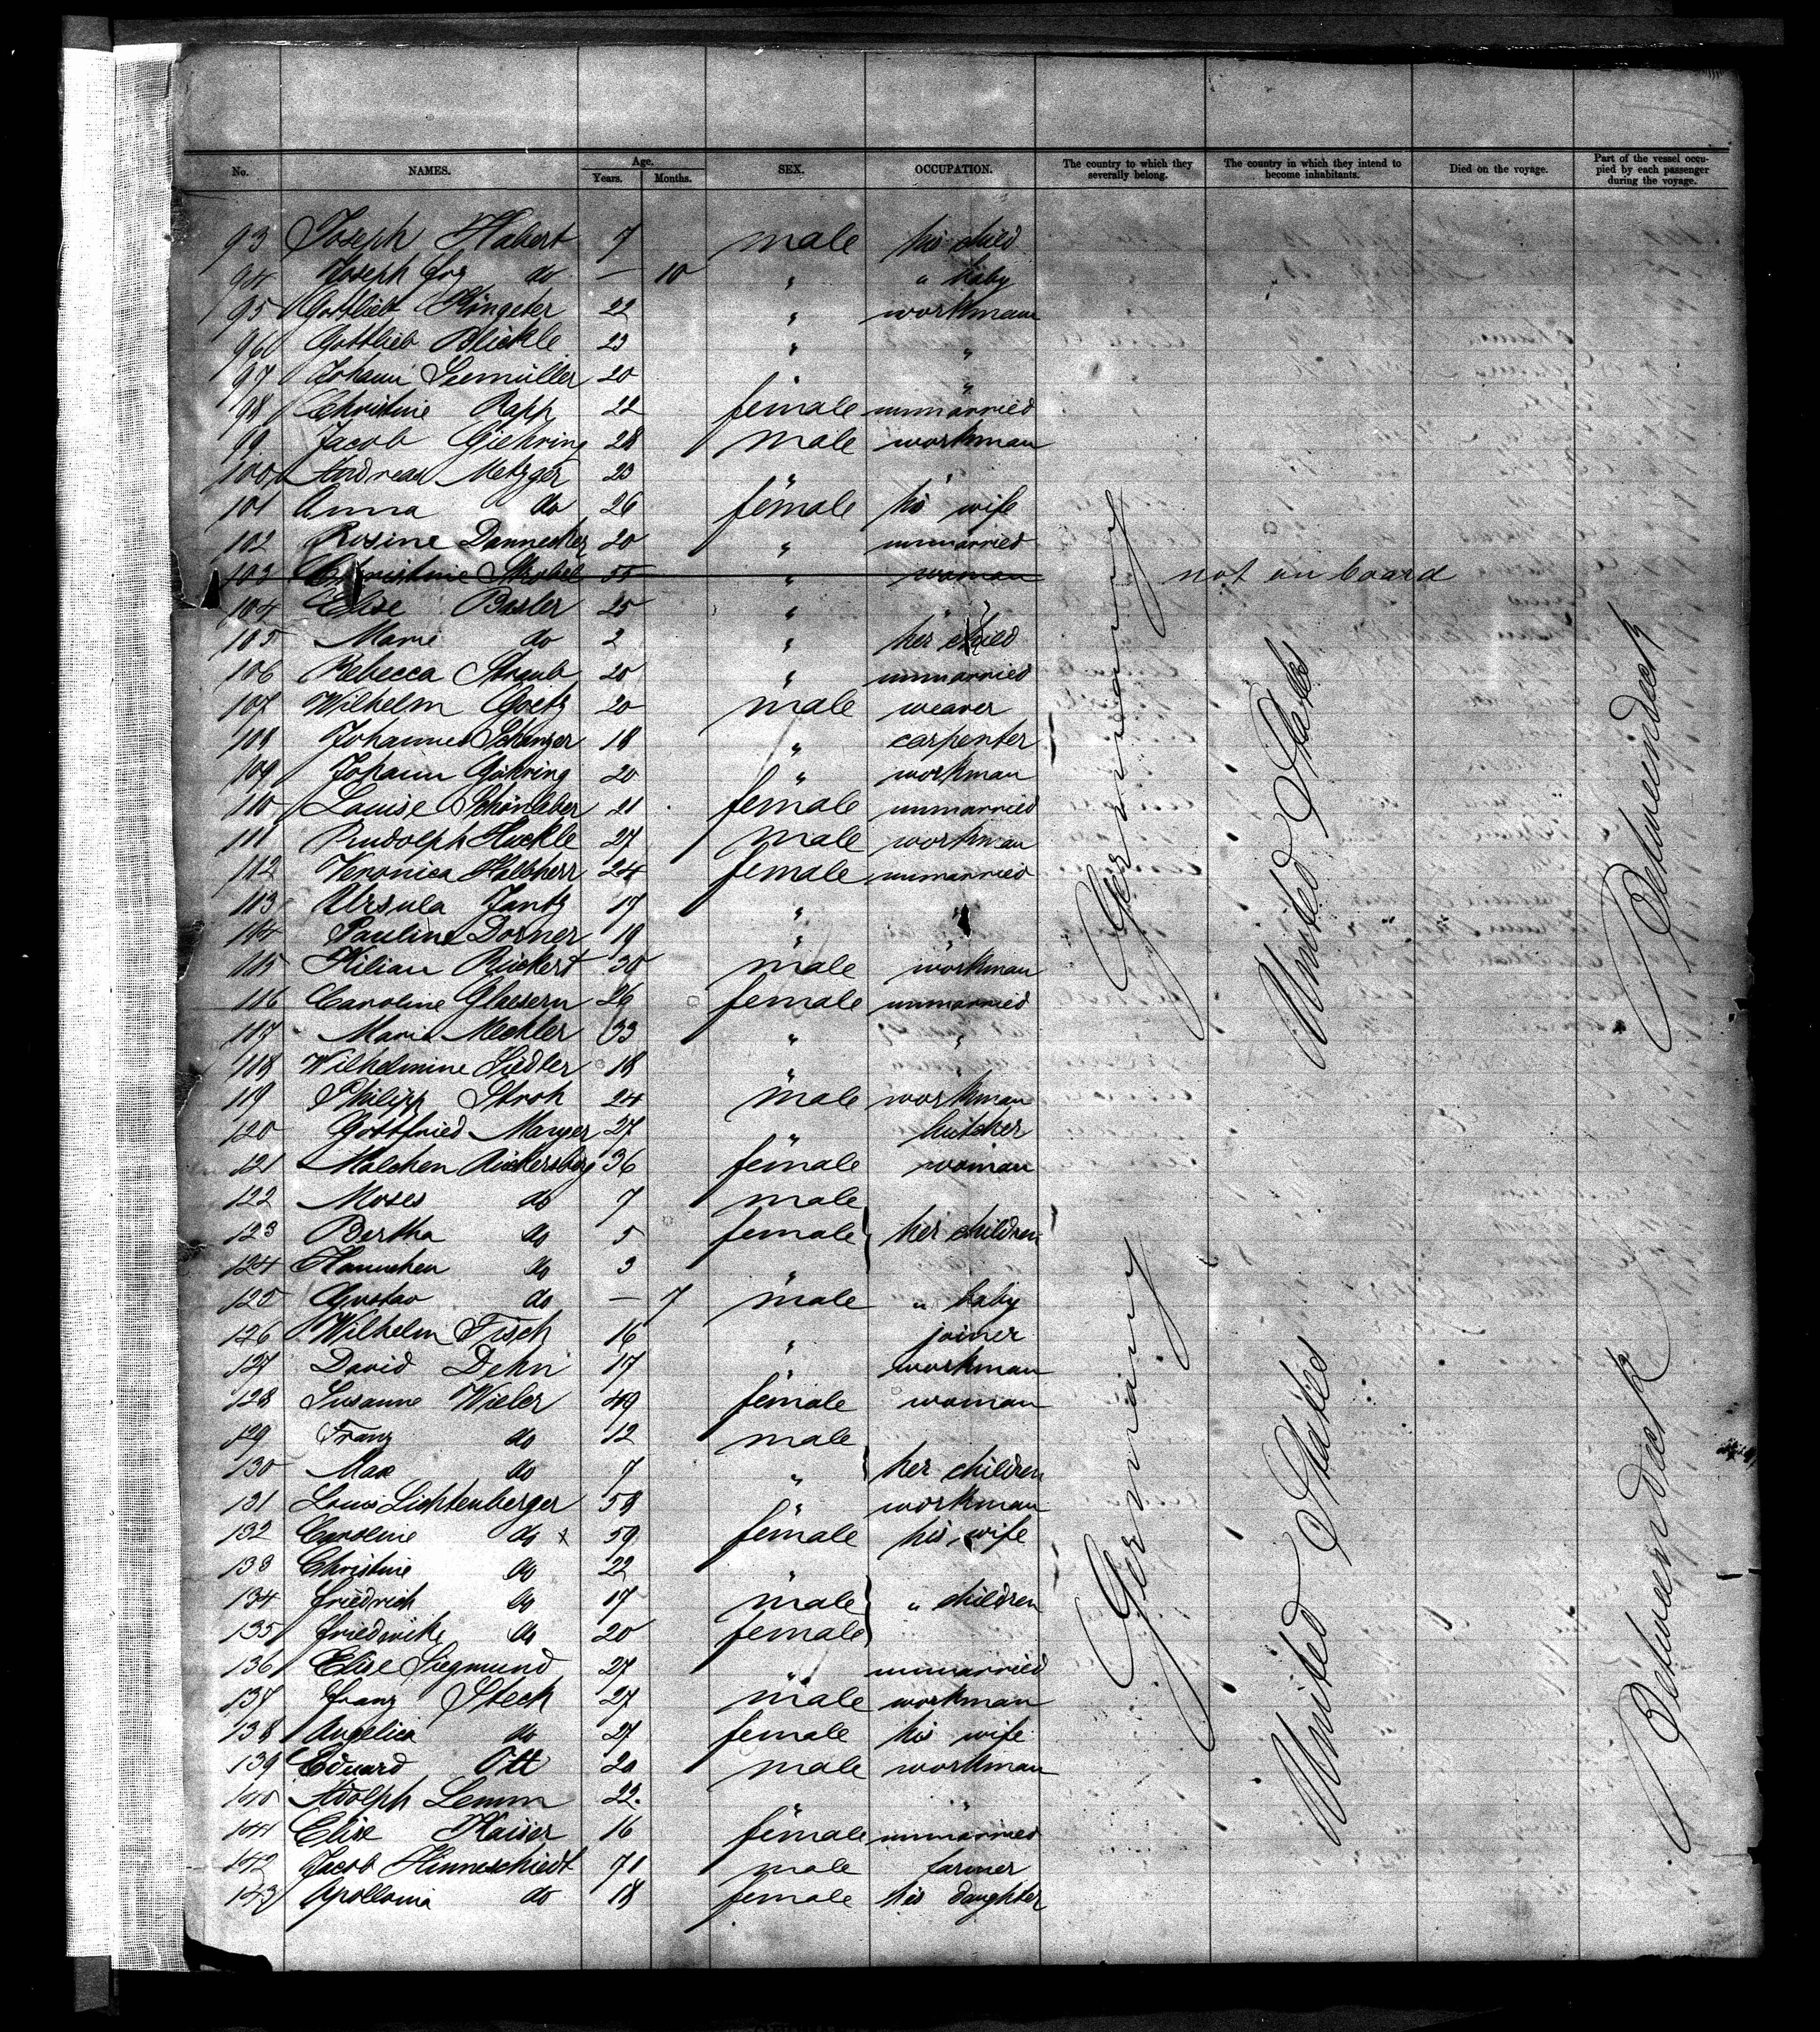 No. NAMES. Age. Years. Months. SEX. OCCUPATION. The country to which they severally belong. The country in which they intend to become inhabitants. Died on the voyage. Part of the vessel occupied by each passenger during the voyage.
93 Joseph Habert 7 male his child
94 Joseph do — 10 " " baby
95 Gottlieb Ringeter 22 " workman
96 Gottlieb Blickle 23 " "
97 Johann Seemüller 20 "
98 Christine Rapp 22 female unmarried
99 Jacob Giehring 28 male workman
100 Andreas Metzger 23 " "
101 Anna do 26 female his wife
102 Rosine Dannecker 20 " unmarried
103 Christine Strobel 55 " woman not on board
104 Elise Basler 25 " "
105 Marie do 2 " her child
106 Rebecca Straub 20 " unmarried
107 Wilhelm Goetz 20 male weaver
108 Johannes Schanzer 18 " carpenter
109 Johann Göhring 20 " workman
110 Louise Schönleber 21 female unmarried
111 Rudolph Huckle 27 male workman
112 Veronica Halbherr 24 female unmarried
113 Ursula Jantz 17 " "
114 Pauline Dorner 19 " "
115 Kilian Rückert 30 male workman
116 Caroline Glaesern 26 female unmarried
117 Marie Meckler 33 " "
118 Wilhelmine Siedler 18 " "
119 Philipp Stroh 24 male workman
120 Gottfried Mauser 27 " butcher
121 Malchen Rickersberg 36 female woman
122 Moses do 7 male
123 Bertha do 5 female her children
124 Hannchen do 3 "
125 Gustav do — 7 male " baby
126 Wilhelm Tisch 16 " joiner
127 David Dehn 17 " workman
128 Susanne Wieler 49 female woman
129 Franz do 12 male
130 Max do 7 " her children
131 Louis Lichtenberger 58 " workman
132 Caroline do x 59 female his wife
133 Christine do 22 "
134 Friedrich do 17 male " children
135 Friedricke do 20 female
136 Elise Siegmund 27 " unmarried
137 Franz Steck 27 male workman
138 Angelica do 27 female his wife
139 Eduard Ott 20 male workman
140 Adolph Lemm 22 " "
141 Elise Kaiser 16 female unmarried
142 Jacob Hinneschiedt 71 male farmer
143 Apollonia do 18 female his daughter
Germany
United States
Betweendeck
Germany
United States
Betweendeck